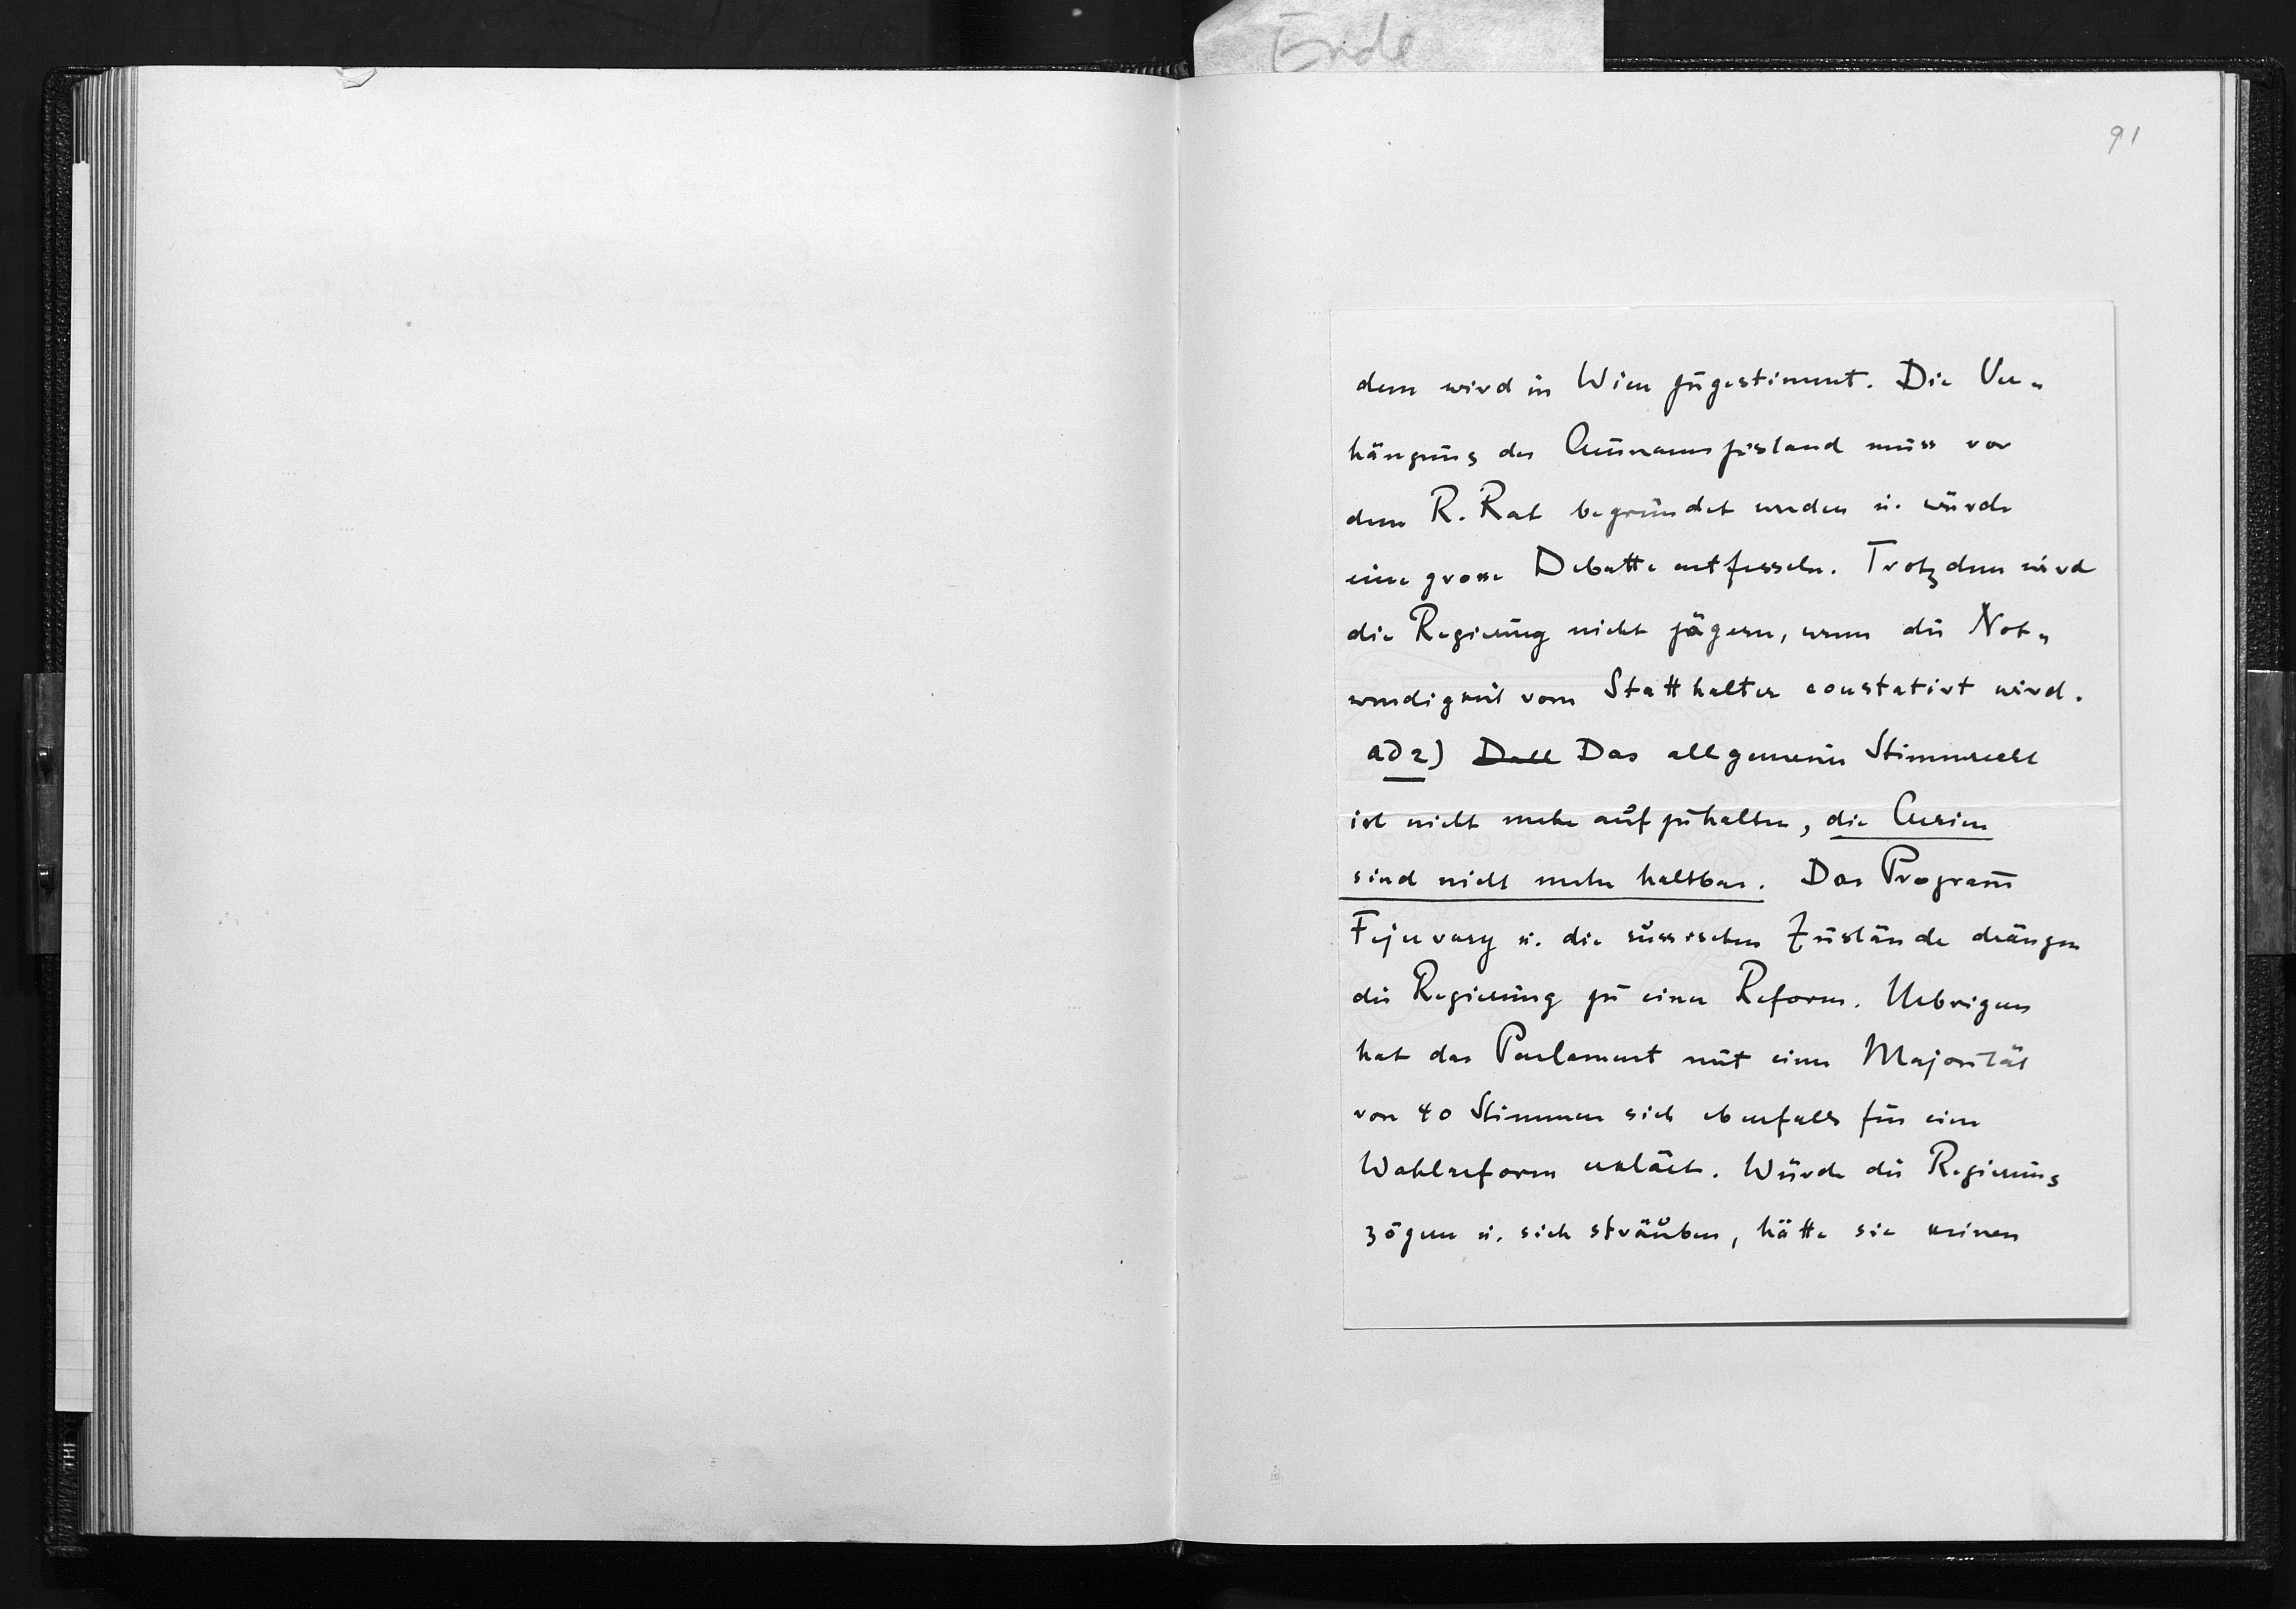 Ende
91
dem wird in Wien zugestimmt. Die Ver-
hängung des Ausnamszustand muss vor
dem R. Rat begründet werden u. würde
eine grosse Debatte entfesseln. Trotzdem wird
die Regierung nicht zögern, wenn die Not-
wendigkeit vom Statthalter constatirt wird.
ad 2) Das allgemeine Stimmrecht
ist nicht mehr aufzuhalten, die Curien
sind nicht mehr haltbar. Das Program̄
Fejervary u. die russischen Zustände drängen
die Regierung zu einer Reform. Uebrigens
hat das Parlament mit einer Majorität
von 40 Stimmen sich ebenfalls für eine
Wahlreform erklärt. Würde die Regierung
zögern u. sich sträuben, hätte sie keinen